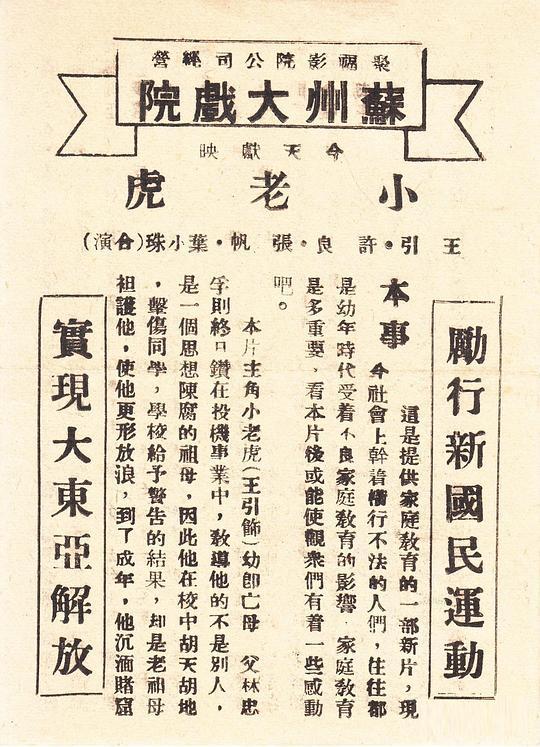 聚福影院公司經營
蘇州大戲院
今天獻映
小老虎
王引・許良・張帆・葉小珠(合演)
勵行新國民運動
本事
這是提供家庭敎育的一部新片，現
今社會上幹着橫行不法的人們，往往都
是幼年時代受着不良家庭敎育的影響 家庭敎育
是多重要，看本片後或能使觀衆們有着一些感動
吧。
本片主角小老虎(王引飾)幼卽亡母 父林忠
孚則終日鑽在投機事業中，敎導他的不是別人，
是一個思想陳腐的祖母，因此他在校中胡天胡地
，擊傷同學，學校給予警告的結果，却是老祖母
袒護他，使他更形放浪，到了成年，他沉湎賭窟
實現大東亞解放